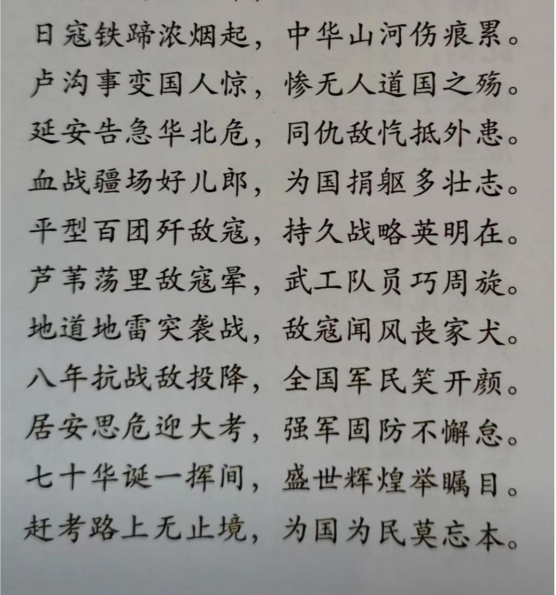 日寇铁蹄浓烟起，中华山河伤痕累。
卢沟事变国人惊，惨无人道国之殇。
延安告急华北危，同仇敌忾抵外患。
血战疆场好儿郎，为国捐躯多壮志。
平型百团歼敌寇，持久战略英明在。
芦苇荡里敌寇晕，武工队员巧周旋。
地道地雷突袭战，敌寇闻风丧家犬。
八年抗战敌投降，全国军民笑开颜。
居安思危迎大考，强军固防不懈怠。
七十华诞一挥间，盛世辉煌举瞩目。
赶考路上无止境，为国为民莫忘本。